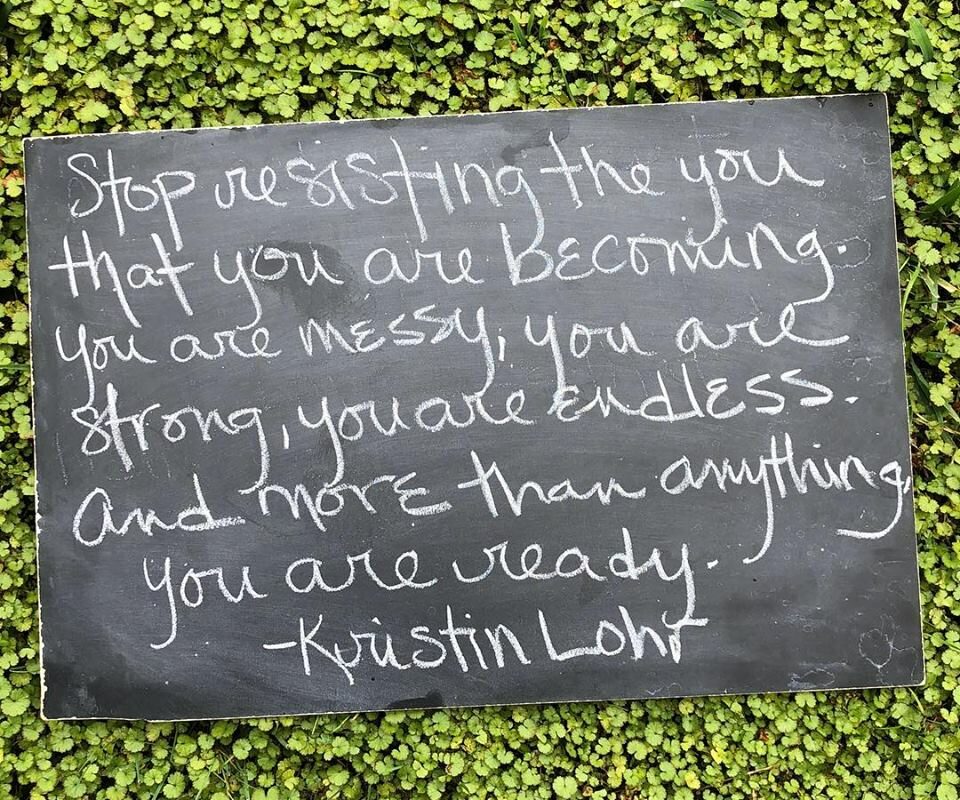 Stop resisting the you
that you are becoming.
you are messy, you are
strong, you are endless.
And more than anything,
you are ready.
-Kristin Lohr